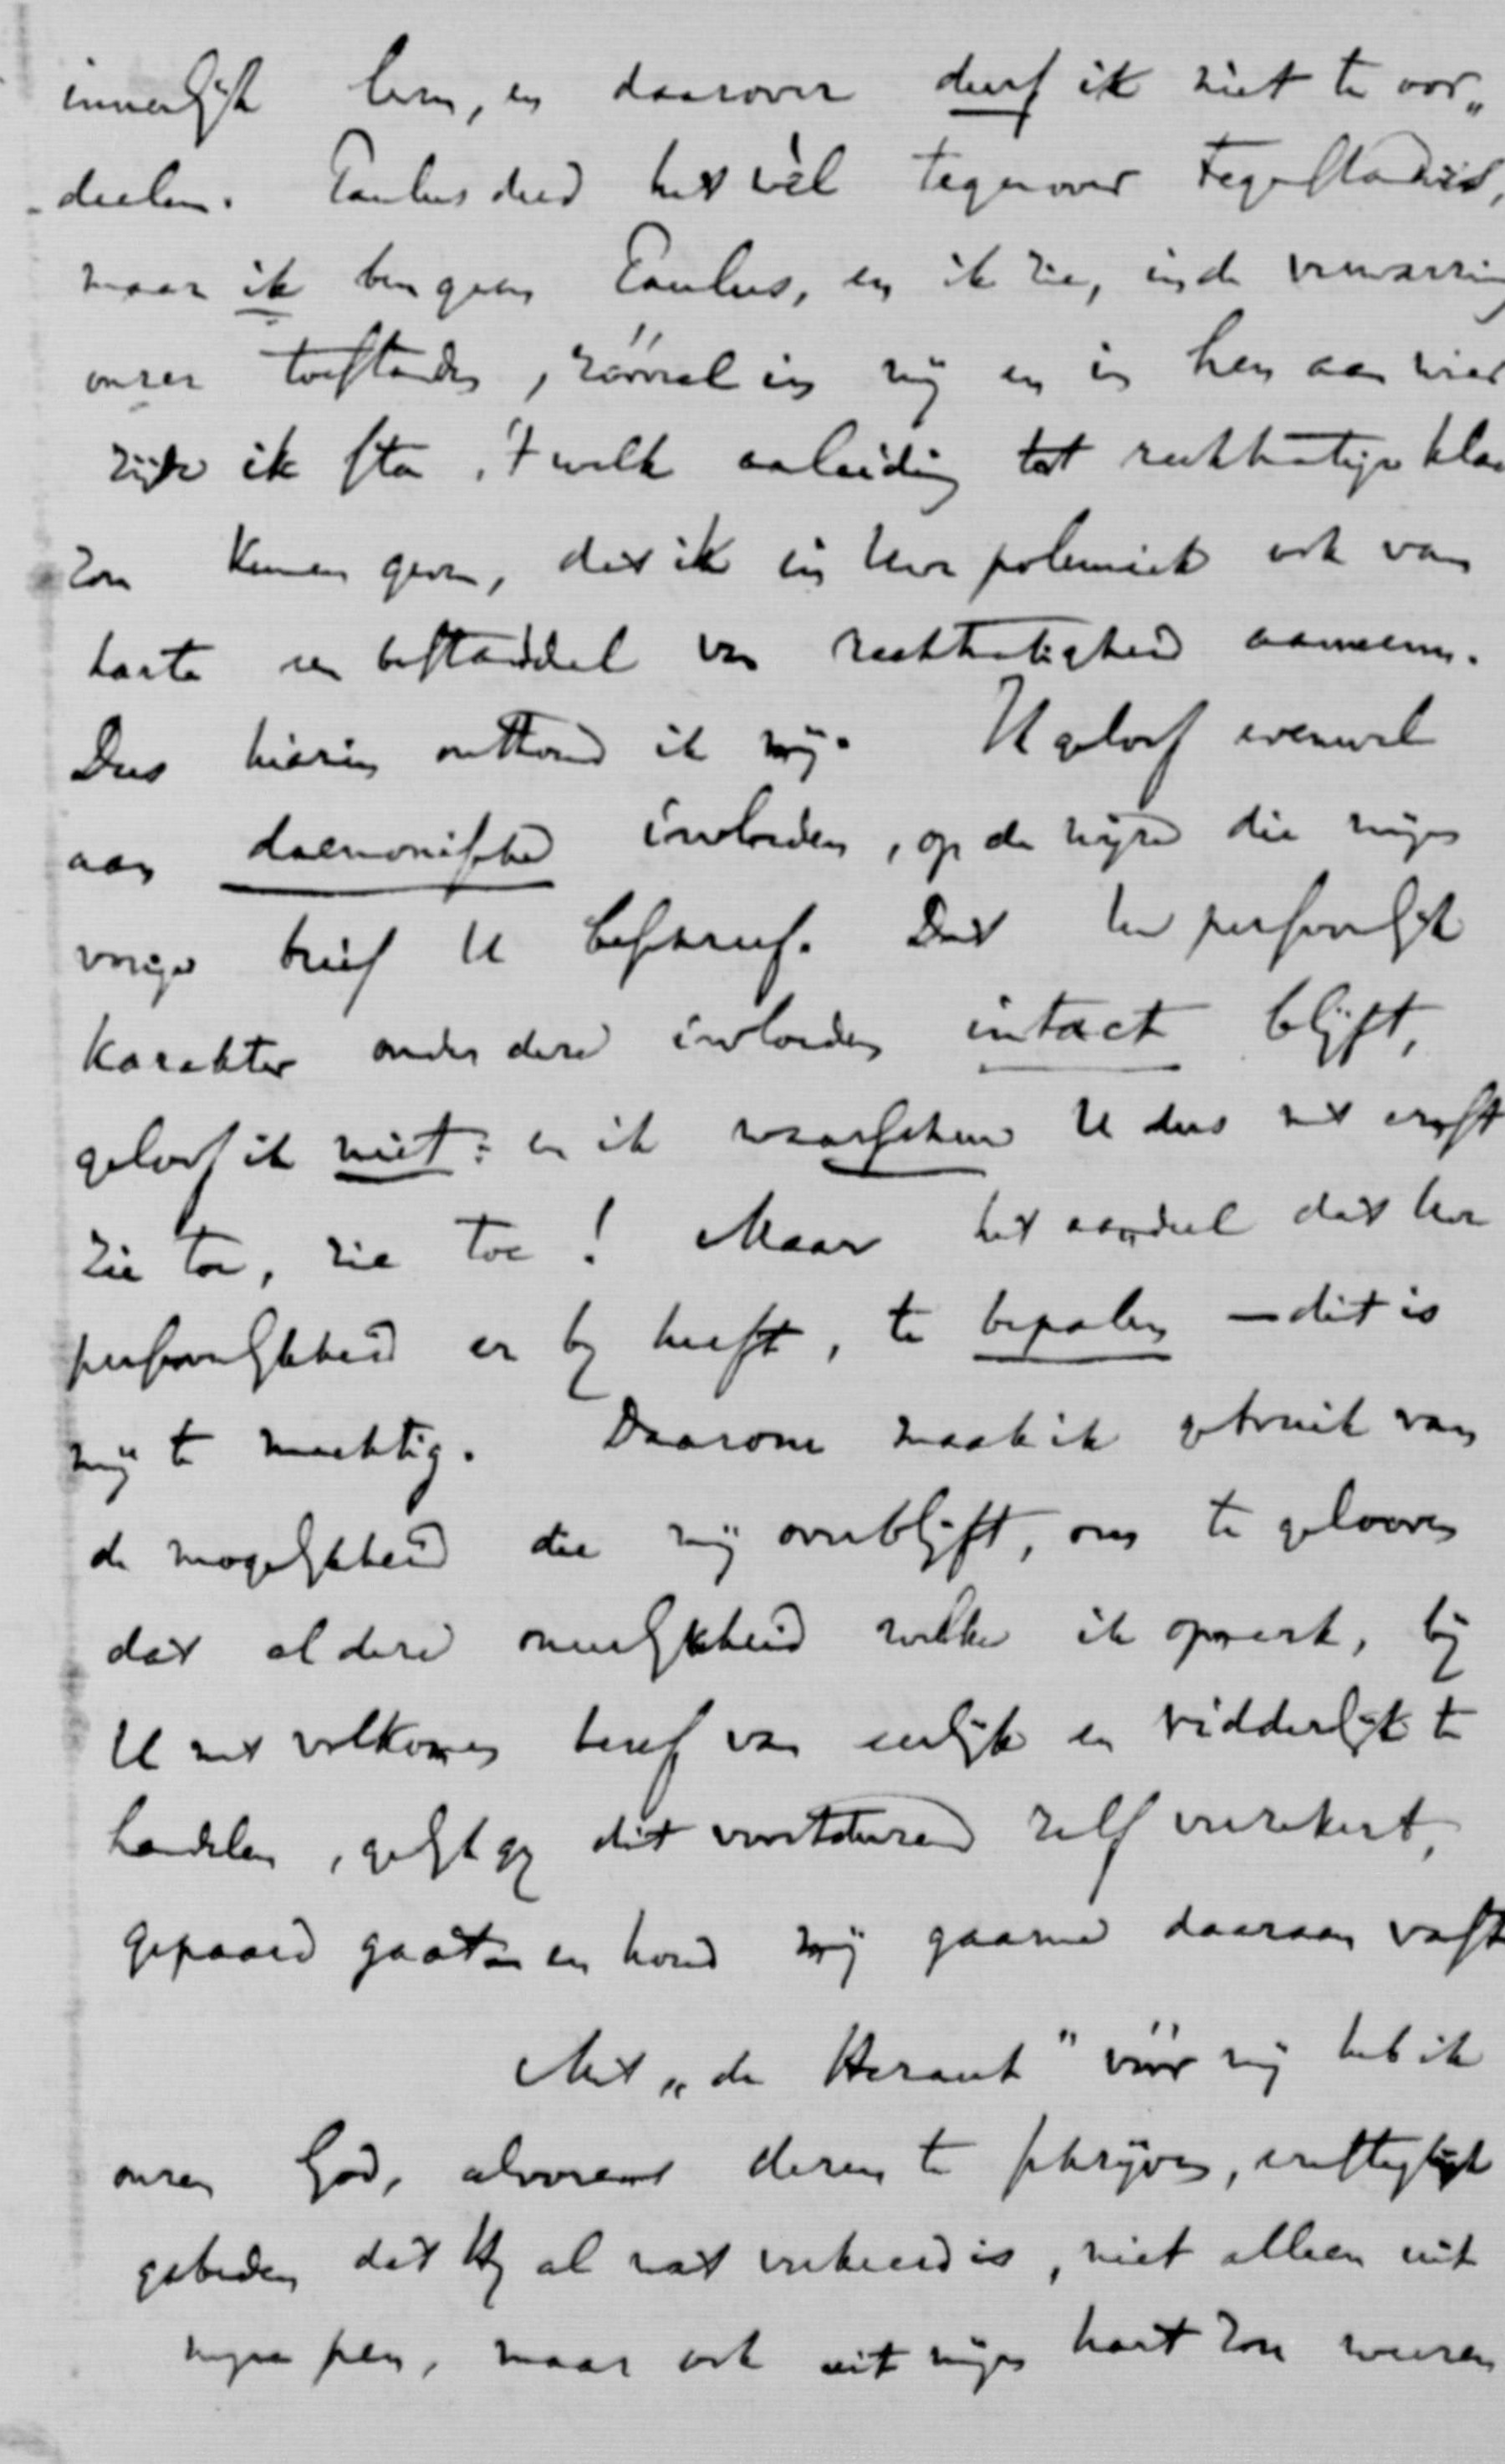 innerlijk leven, en daarover durf ik niet te oor„
deelen. Paulus deed het wèl tegenover
maar ik ben geen Paulus, en ik zie, in de verwarring
onzer toestanden, zóóveel in mij en in hen aan wier
zijde ik sta, 't welk aanleiding tot rechtmatige klac
zou kunnen geven, dat ik in Uwe polemiek ook van
harte een bestanddeel van rechtmatigheid aanneem.
Dus hierin onthoud ik mij. Ik geloof evenwel
aan daemonische invloeden, op de wijze die mijn
vorige brief U beschreef. Dat Uw persoonlijk
karakter onder deze invloeden intact blijft,
geloof ik niet: en ik waarschuw U dus met ernst
zie toe, zie toe! Maar het aandeel dat Uw
persoonlijkheid er bij heeft, te bepalen – dit is
mij te machtig. Daarom maak ik gebruik van
de mogelijkheid die mij overblijft, om te gelooven
dat al deze oneerlijkheid welke ik opmerk, bij
U met volkomen besef van eerlijk en ridderlijk te
handelen, gelijk gij dit voortdurend zelf verzekert,
gepaard gaat en houd mij gaarne daaraan vast
Met „de Heraut" vóór mij heb ik
onzen God, alvorens dezen te schrijven, ernstiglijk
gebeden dat Hij al wat verkeerd is, niet alleen uit
mijne pen, maar ook uit mijn hart zou weeren